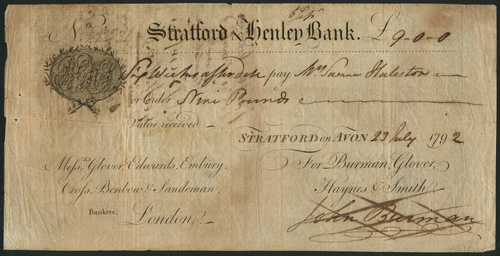 No
Stratford & Henley Bank. £ 9-0-0
Six Weeks after date pay Mrs Susan Huleston
or Order Nine Pounds
Value received
STRATFORD on AVON 23 July 1792
Messrs. Glover, Edwards, Embury,
Cross, Benbow & Sandeman,
Bankers,
London.
For Burman, Glover,
Haynes & Smith
John Burman